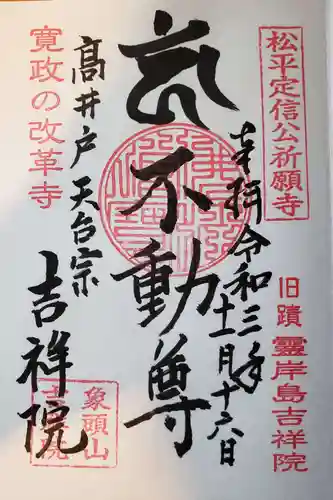 松平定信公祈願寺
旧蹟 霊岸島吉祥院
奉拝 令和三年
十二月十六日
不動尊
寛政の改革寺
高井戸 天台宗
吉祥院
象頭山